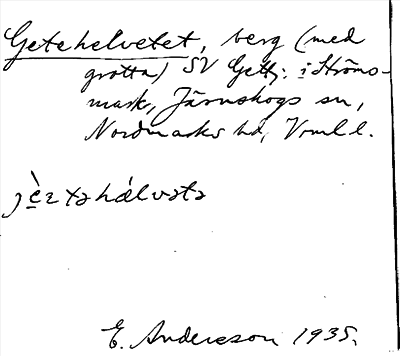 Getehelvetet, berg (med
grotta) SV Getb: i Ströms-
mark, Järnskogs sn,
Nordmarks hd, Vrml l.
E. Andersson 1935.